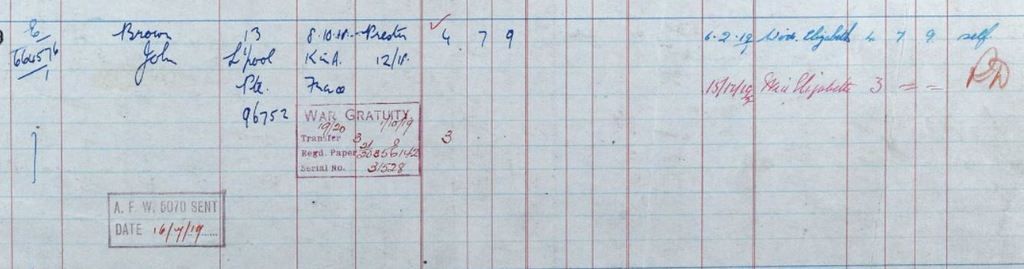 E/
664576/1
Brown
John
13
L'pool
Pte.
96752
8.10.18. Preston
K in A. 12/18.
France
4 7 9
6.2.19 Wid. Elizabeth 4 7 9 self
15/12/19 Wid Elizabeth 3 = =
WAR GRATUITY
19/20 1/10/19
Transfer 3
Regd. Paper
Serial No. 31528
3
A. F. W. 5070 SENT
DATE 16/7/19